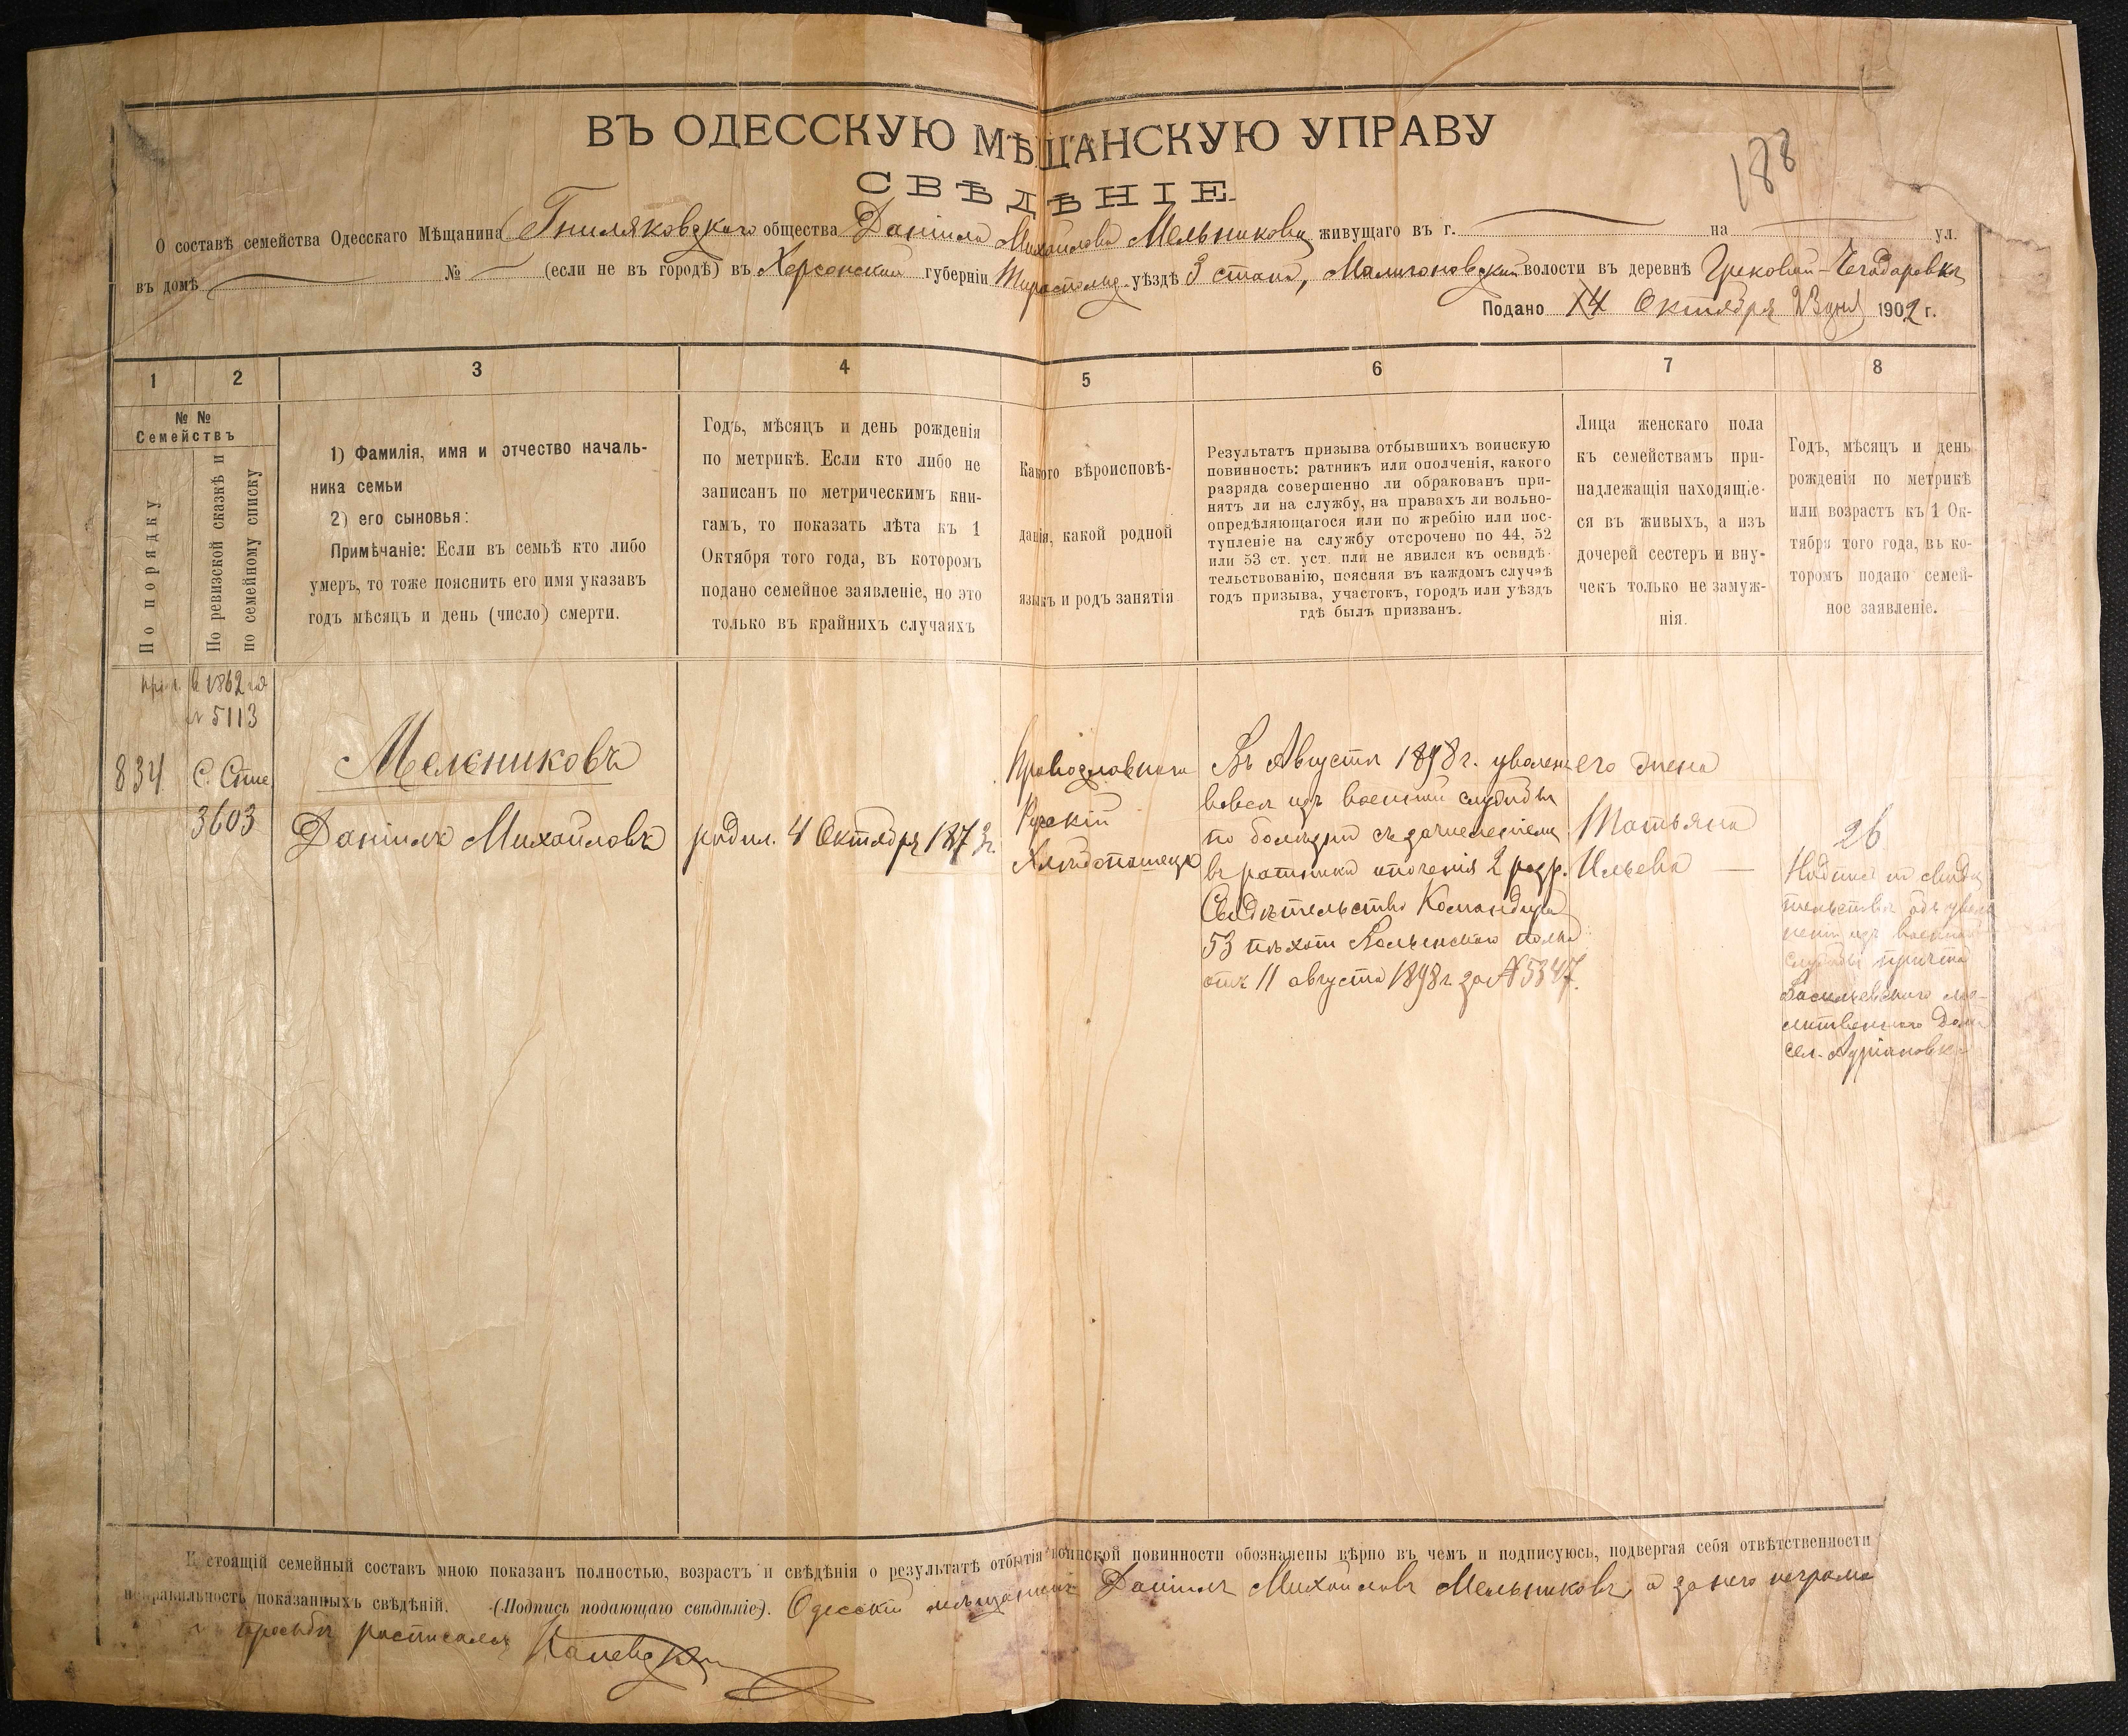 188
ВЪ ОДЕССКУЮ МѢЩАНСКУЮ УПРАВУ
СВѢДѢНІЕ
О составѣ семейства Одесскаго Мѣщанина Гниляковскаго общества Даніила Михайлова Мельникова живущаго въ г. на ул.
въ домѣ № (если не въ городѣ) въ Херсонской губерніи Тираспольс. уѣздѣ 3 стана, Малигоновской волости въ деревнѣ Грековой-
Подано 14 Октября 23 дня 1902 г.
1 2 3 4 5 6 7 8
№ №
Семействъ
По порядку
По ревизской сказкѣ и
по семейному списку
1) Фамилія, имя и отчество началь-
ника семьи
2) его сыновья:
Примѣчаніе: Если въ семьѣ кто либо
умеръ, то тоже пояснить его имя указавъ
годъ мѣсяцъ и день (число) смерти.
Годъ, мѣсяцъ и день рожденія
по метрикѣ. Если кто либо не
записанъ по метрическимъ кни-
гамъ, то показать лѣта къ 1
Октября того года, въ которомъ
подано семейное заявленіе, но это
только въ крайнихъ случаяхъ
Какого вѣроисповѣ-
данія, какой родной
языкъ и родъ занятія
Результатъ призыва отбывшихъ воинскую
повинность: ратникъ или ополченія, какого
разряда совершенно ли обракованъ при-
нятъ ли на службу, на правахъ ли вольно-
опредѣляющагося или по жребію или пос-
тупленіе на службу отсрочено по 44, 52
или 53 ст. уст. или не явился къ освидѣ-
тельствованію, поясняя въ каждомъ случаѣ
годъ призыва, участокъ, городъ или уѣздъ
гдѣ былъ призванъ.
Лица женскаго пола
къ семействамъ при-
надлежащія находящіе-
ся въ живыхъ, а изъ
дочерей сестеръ и вну-
чекъ только не замуж-
нія.
Годъ, мѣсяцъ и день
рожденія по метрикѣ
или возрастъ къ 1 Ок-
тября того года, въ ко-
торомъ подано семей-
ное заявленіе.
в 1862 год
№ 5113
834
3603
Мельниковъ
Даніилъ Михайловъ
родил. 4 Октября 1873 г.
Православнаго
Русскій
Хлѣбопашецъ
Въ Августѣ 1898 г. уволенъ
вовсе изъ военной службы
по болѣзни съ зачисленіемъ
въ ратники ополченія 2 разр.
Свидѣтельство Командира
53 пѣхот Волынскаго полка
отъ 11 августа 1898 г. за № 5347.
его жена
Татьяна
Ильева —
26
Надпись на свидѣ
тельствѣ объ уволь
неніи изъ военной
службы причта
Васильевскаго мо-
литвеннаго Дома
сел. Адріановка
Настоящій семейный составъ мною показанъ полностью, возрастъ и свѣдѣнія о результатѣ отбытія воинской повинности обозначены вѣрно въ чемъ и подписуюсь, подвергая себя отвѣтственности
неправильность показанныхъ свѣдѣній. (Подпись подающаго свѣдѣніе). Одесскій мѣщанинъ Даніилъ Михайловъ Мельниковъ, а за него неграмо
просьбѣ росписался